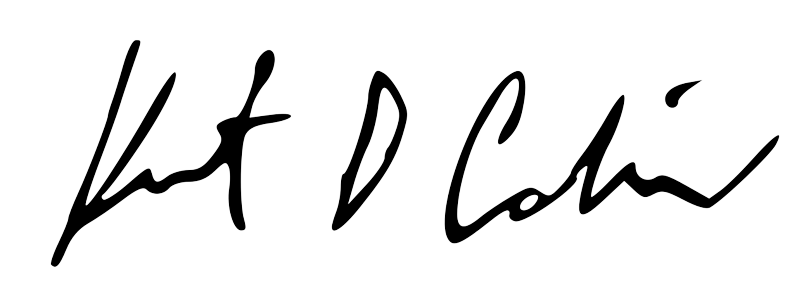 Kurt D Cobain